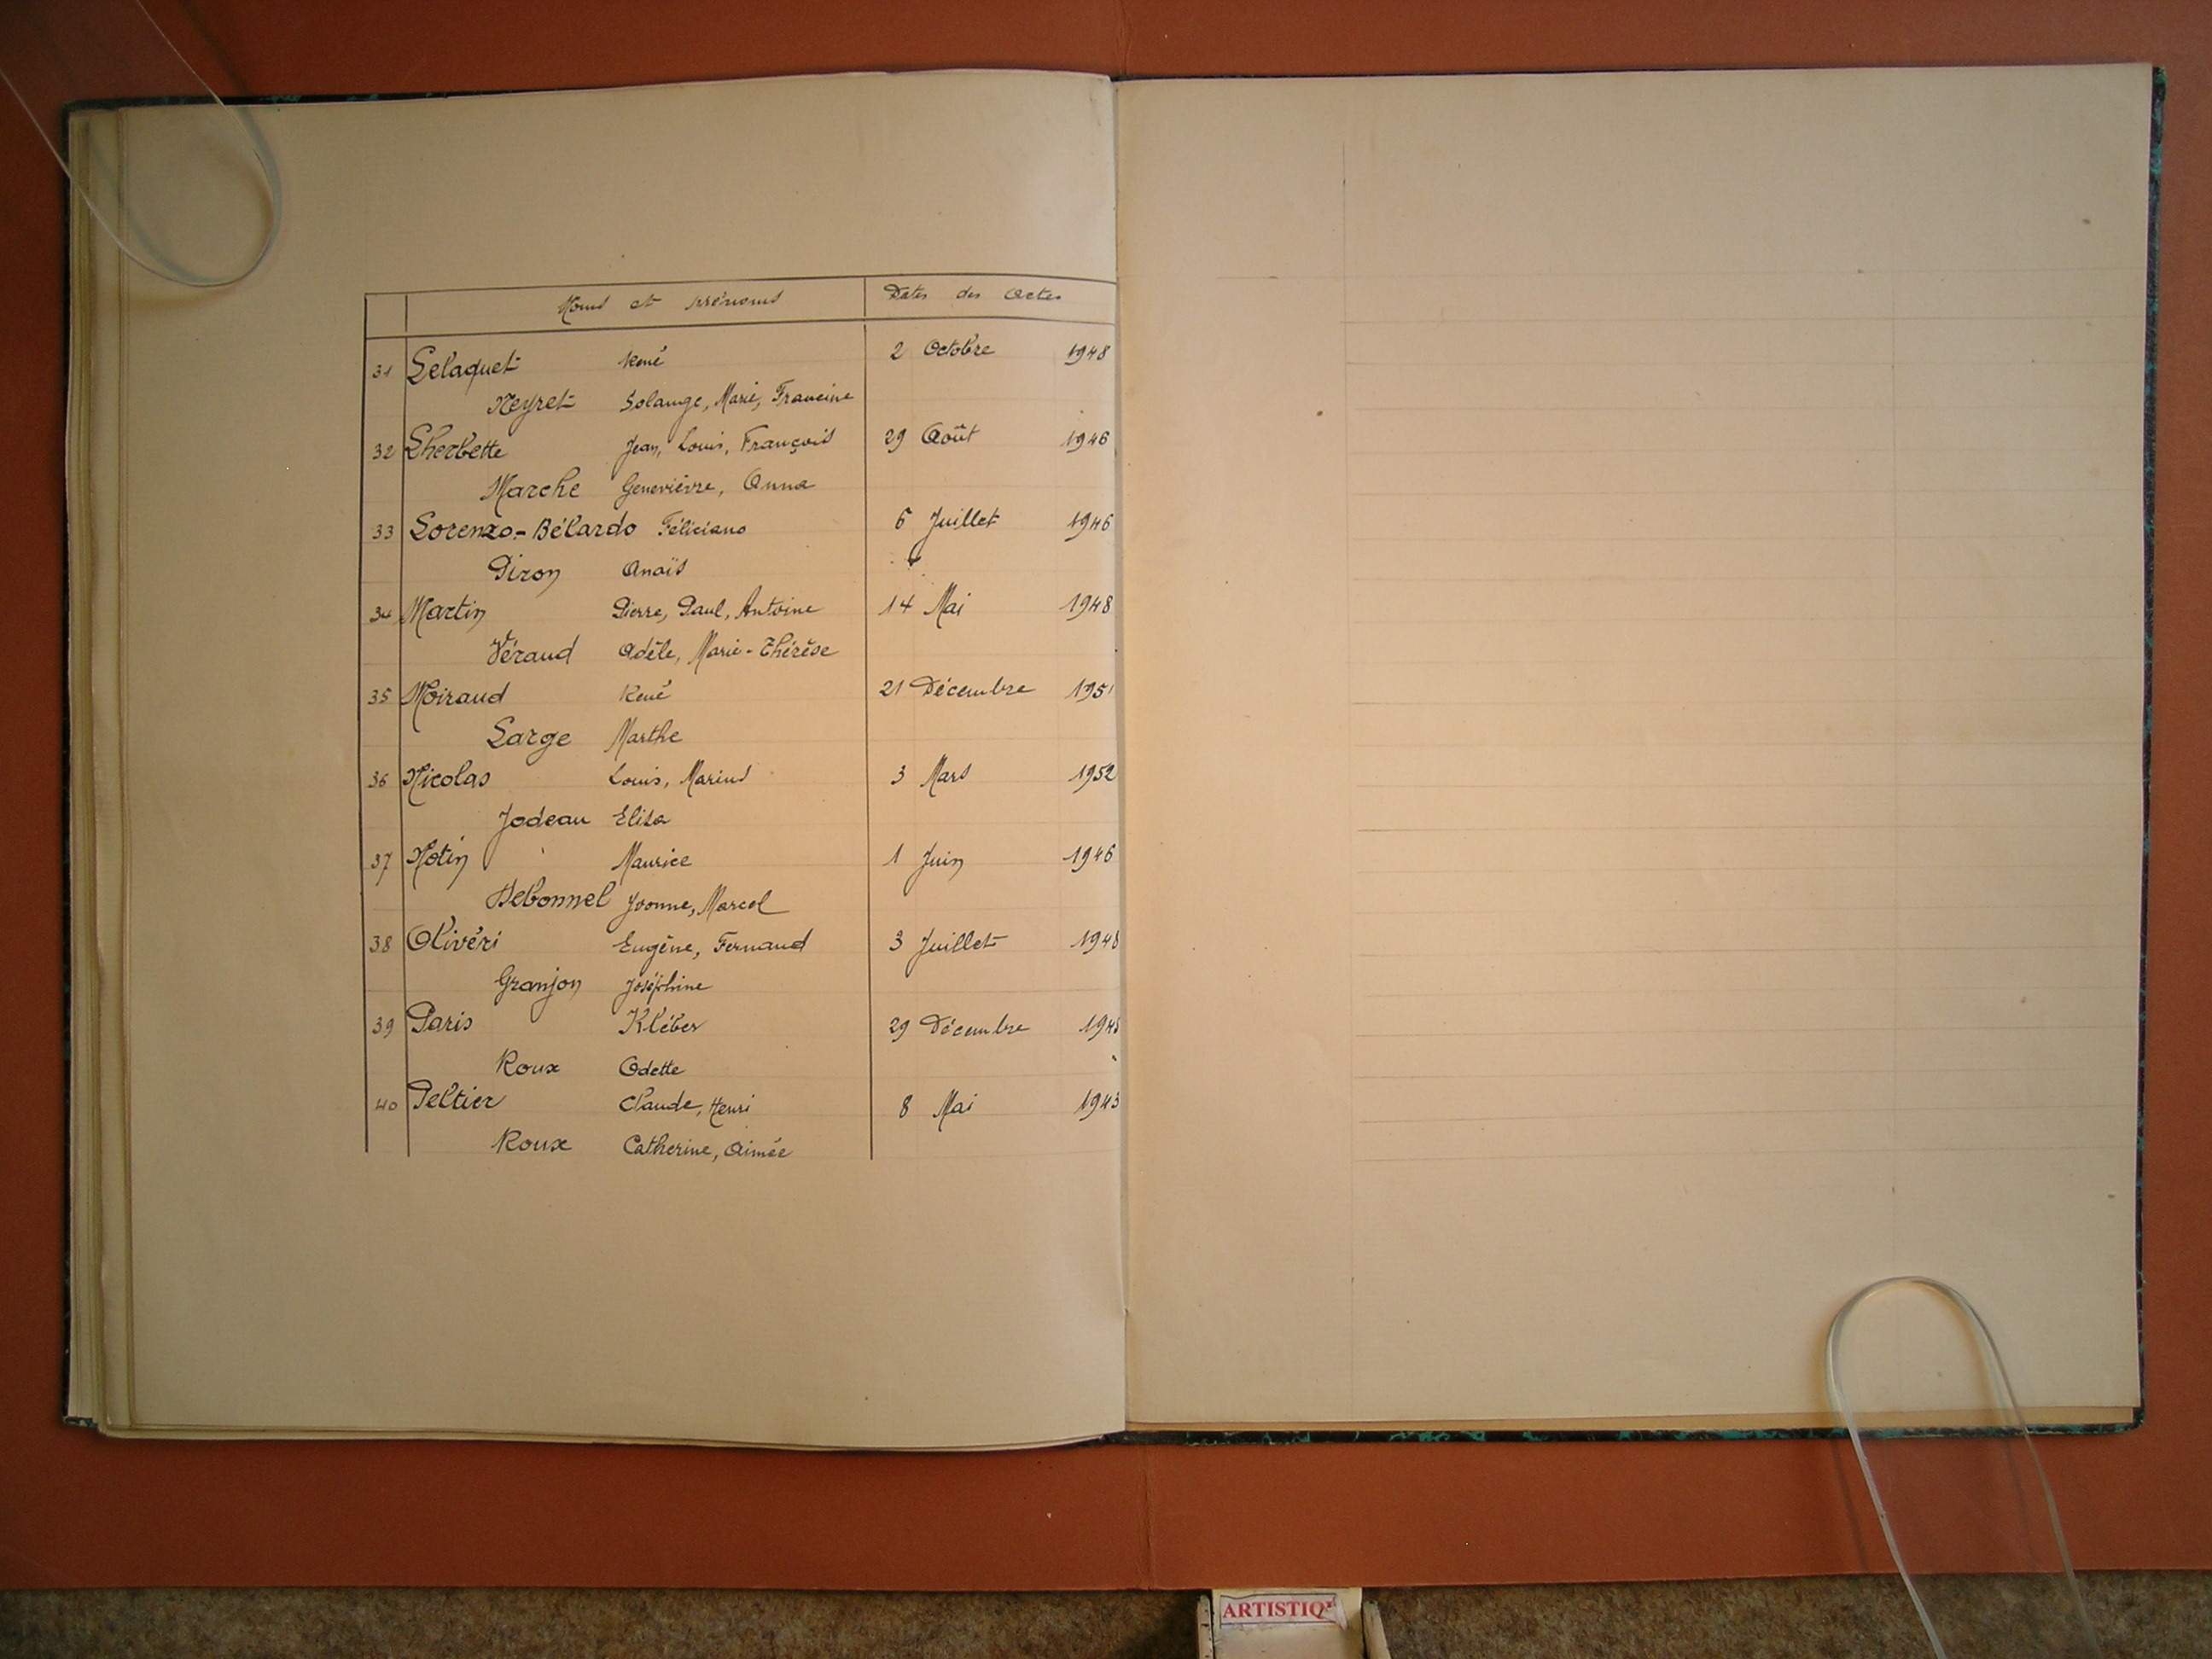 Noms et prénoms Dates des Actes
31 Lelaquet René 2 Octobre 1948
Neyret Solange, Marie, Francine
32 Lherbette Jean, Louis, François 29 Août 1946
Marche Geneviève, Anna
33 Lorenzo-Bélardo Féliciano 6 Juillet 1946
Piron Anaïs
34 Martin Pierre, Paul, Antoine 14 Mai 1948
Véraud Adèle, Marie-Thérèse
35 Moiraud René 21 Décembre 1951
Large Marthe
36 Nicolas Louis, Marius 3 Mars 1952
Jodeau Elisa
37 Notin Maurice 1 Juin 1946
Debonnel Yvonne, Marcel
38 Olivéri Eugène, Fernand 3 Juillet
Granjon Joséphine
39 Paris Kléber 29 Décembre
Roux Odette
40 Peltier Claude, Henri 8 Mai 1943
Roux Catherine, Aimée